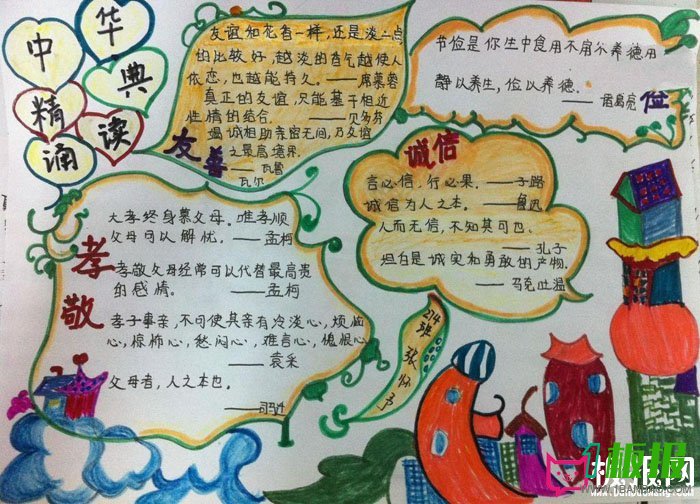 中华
经典
精读
诵
友谊和花香一样,还是淡一点
的比较好,越淡的香气越使人
依恋,也越能持久。——席慕蓉
真正的友谊,只能基于相近
性情的结合。——贝多芬
竭诚相助亲密无间,乃友谊
之最高境界。
——瓦鲁
瓦尔
友善
节俭是你一生中食用不
静以养生,俭以养德。
——诸葛亮
俭
诚信
言必信,行必果。——子路
诚信为人之本。——鲁迅
人而无信,不知其可也。
——孔子
坦白是诚实和勇敢的产物。
——马克吐温
孝敬
大孝终身慕父母。唯孝顺
父母可以解忧。——孟柯
孝敬父母经常可以代替最高贵
的感情。——孟柯
孝子事亲,不可使其亲有冷淡心,烦恼
心,惊怖心,愁闷心,难言心,愧恨心
——袁采
父母者,人之本也。
——司马迁
214
班
张
板报网